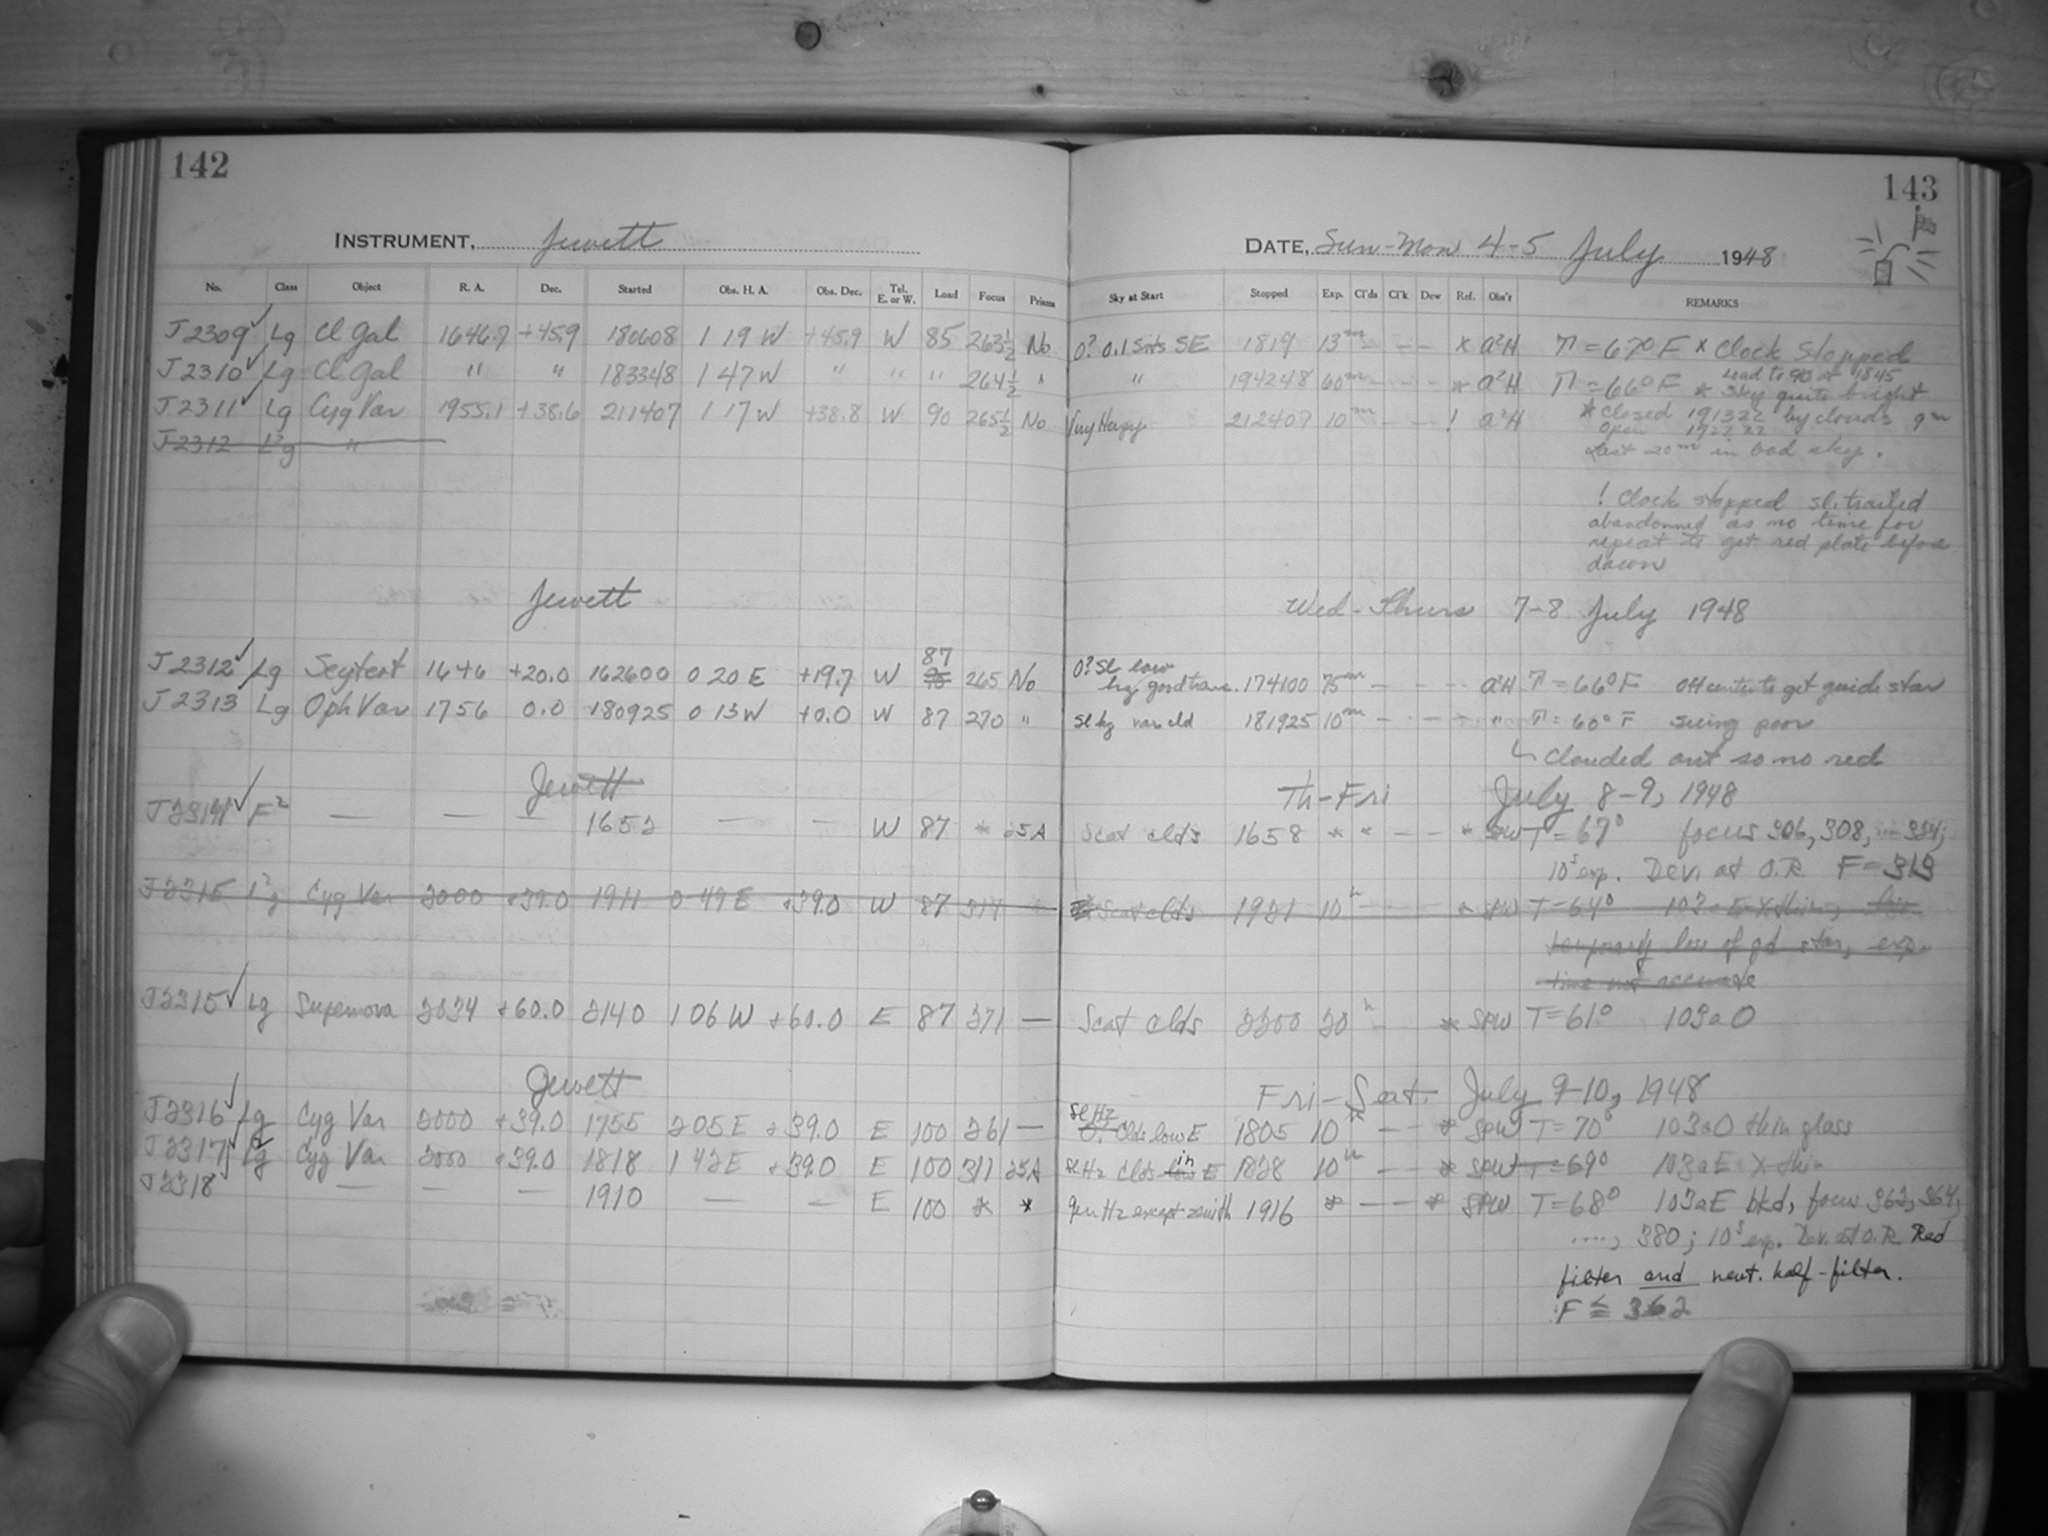 142
143
INSTRUMENT, Jewett
DATE, Sun-Mon 4-5 July 1948
No. Class Object R. A. Dec. Started Obs. H. A. Obs. Dec. Tel. E. or W. Load Focus Prisms Sky at Start Stopped Exp. Cl'ds Cl'k Dew Ref. Obs'r REMARKS
J2309 Lg Cl Gal 1646.9 +45.9 180608 1 19 W +45.9 W 85 263½ No 0? 0.1 SE 1819 13m - - - x a²H T=67°F x Clock Stopped
Lead to 90 at 1845
J2310 Lg Cl Gal " " 183348 1 47 W " " " 264½ " " 194248 60m - - - * a²H T=66°F * Sky quite bright
J2311 Lg Cyg Var 1955.1 +38.6 211407 1 17 W +38.8 W 90 265½ No Very Hazy 212407 10m - - - ! a²H * Closed 191322 by clouds 9m
open 192222
J2312 Lg "
Last 20m in bad sky.
! Clock stopped sl. trailed
abandonned as no time for
repeat to get red plate before
dawn
Jewett Wed-Thurs 7-8 July 1948
J2312 Lg Seyfert 1646 +20.0 162600 0 20 E +19.7 W 87 265 No 0? Sl low
hz good trans. 174100 75m - - - a²H T=66°F Off center to get guide star
J2313 Lg Oph Var 1756 0.0 180925 0 13 W +0.0 W 87 270 " Sl hz var cld 181925 10m - - - " T=60°F seeing poor
Clouded out so no red
Jewett Th-Fri July 8-9, 1948
J2314 F² — — — 1652 — — W 87 * 25A Scat clds 1658 * * - - * SPW T=67° focus 306, 308, ... 334;
10s exp. Dev. at O.R. F=313
J2315 Lg Cyg Var 2000 +39.0 1911 0 49 E +39.0 W 87 314 Scat clds 1921 10m * SPW T=64° 103a E X thin,
temporary loss of gd star, exp.
time not accurate
J2315 Lg Supernova 2034 +60.0 2140 1 06 W +60.0 E 87 271 — Scat clds 2200 20m - * SPW T=61° 103a O
Jewett Fri-Sat. July 9-10, 1948
J2316 Lg Cyg Var 2000 +39.0 1755 2 05 E +39.0 E 100 261 — Sl Hz Clds low E 1805 10m - - * SPW T=70° 103a O thin glass
J2317 Lg Cyg Var 2000 +39.0 1818 1 42 E +39.0 E 100 311 25A Sl Hz Clds low in E 1828 10m - - * SPW T=69° 103a E X thin
J2318 — — — 1910 — — E 100 * * gen Hz except zenith 1916 * - - - * SPW T=68° 103a E bkd, focus 362, 364,
...., 380; 10s exp. Dev. at O.R. Red
filter and neut. half-filter.
F ≦ 362